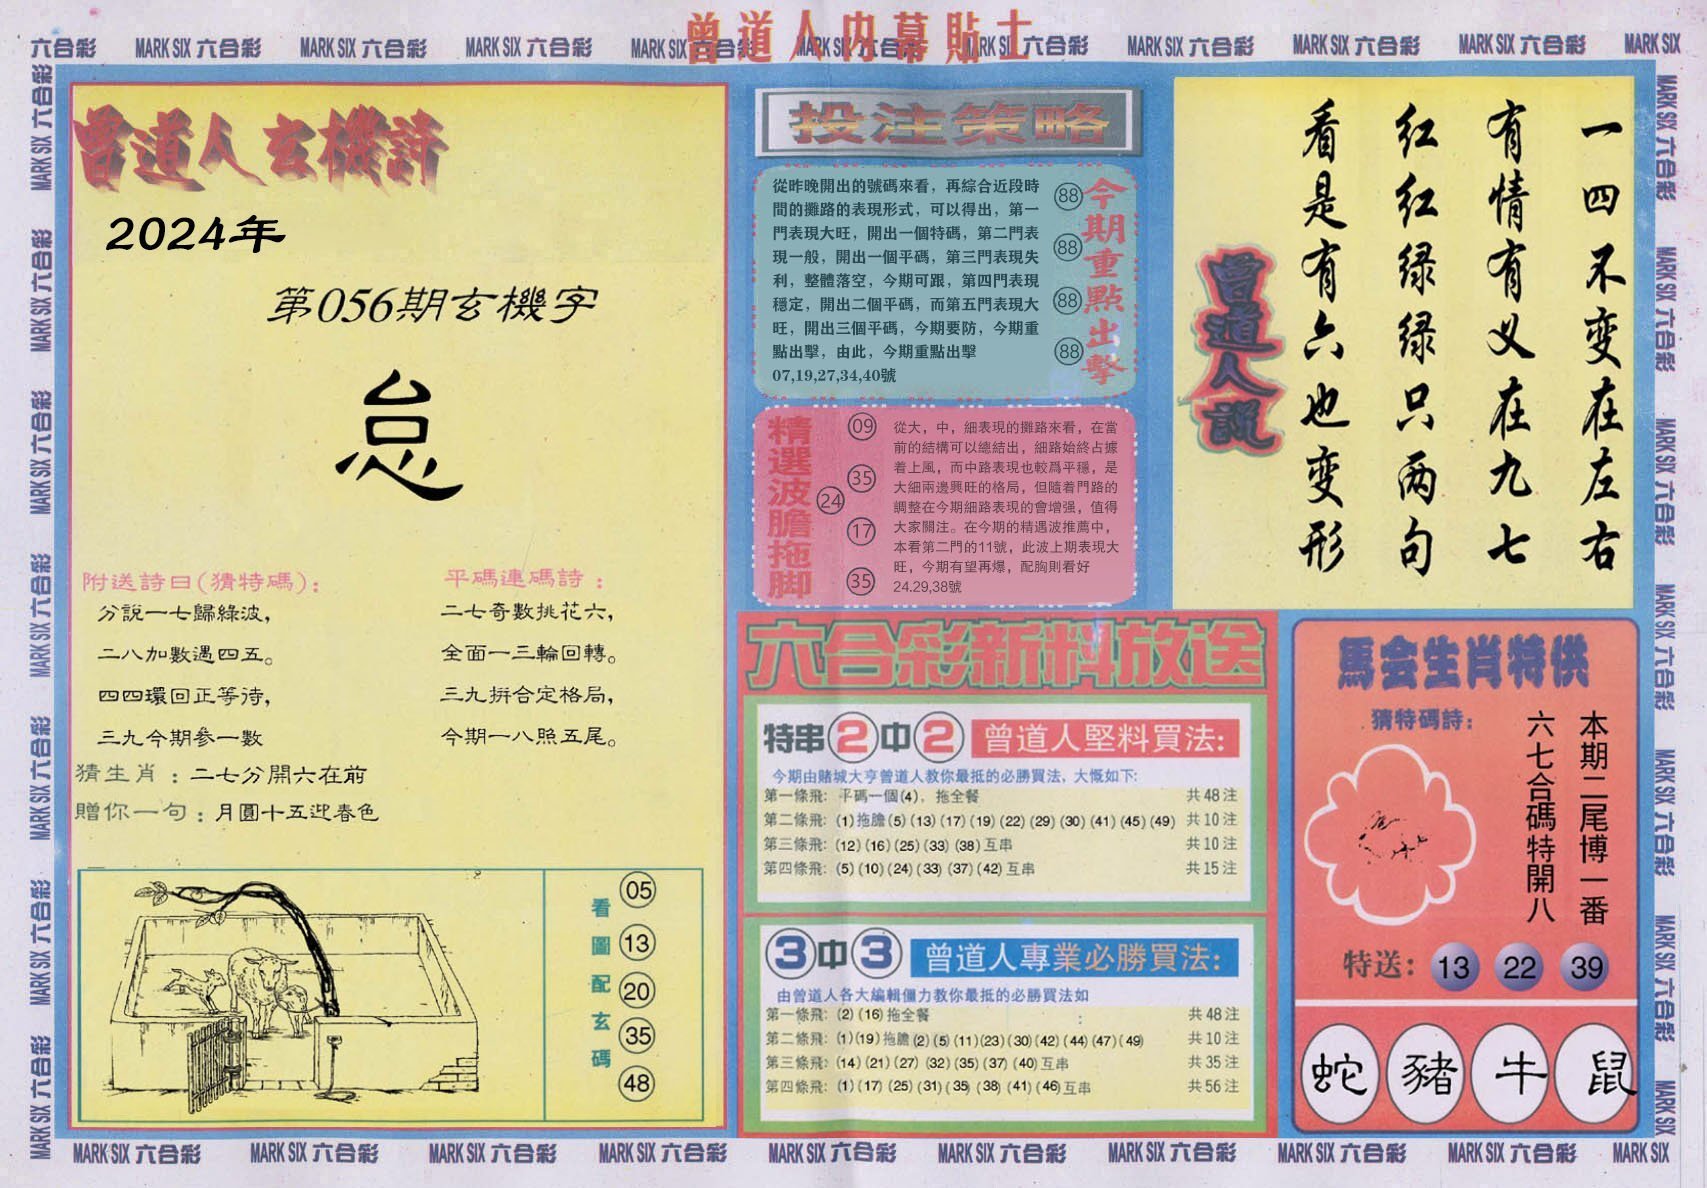 曾道人内幕貼士
六合彩 MARK SIX 六合彩 MARK SIX 六合彩 MARK SIX 六合彩 MARK SIX 六合彩 MARK SIX 六合彩 MARK SIX 六合彩 MARK SIX 六合彩 MARK SIX 六合彩 MARK SIX 六合彩 MARK SIX
曾道人玄機詩
2024年
第056期玄機字
怠
附送詩曰(猜特碼):
分説一七歸綠波,
二八加數遇四五。
四四環回正等待,
三九今期參一數
平碼連碼詩:
二七奇數挑花六,
全面一三輪回轉。
三九拼合定格局,
今期一八照五尾。
猜生肖:二七分開六在前
贈你一句:月圓十五迎春色
看圖配玄碼
05
13
20
35
48
投注策略
從昨晚開出的號碼來看，再綜合近段時
間的攤路的表現形式，可以得出，第一
門表現大旺，開出一個特碼，第二門表
現一般，開出一個平碼，第三門表現失
利，整體落空，今期可跟，第四門表現
穩定，開出二個平碼，而第五門表現大
旺，開出三個平碼，今期要防，今期重
點出擊，由此，今期重點出擊
07,19,27,34,40號
88
88
88
88
今期重點出擊
精選波膽拖脚
09
35
24
17
35
從大，中，細表現的攤路來看，在當
前的結構可以總結出，細路始終占據
着上風，而中路表現也較爲平穩，是
大細兩邊興旺的格局，但隨着門路的
調整在今期細路表現的會增强，值得
大家關注。在今期的精遇波推薦中，
本看第二門的11號，此波上期表現大
旺，今期有望再爆，配胸則看好
24.29,38號
一四不变在左右
有情有义在九七
红红绿绿只两句
看是有六也变形
曾道人説
六合彩新料放送
特串2中2 曾道人堅料買法:
今期由賭城大亨曾道人教你最抵的必勝買法，大慨如下:
第一條飛: 平碼一個(4)，拖全餐 共48注
第二條飛: (1)拖膽(5)(13)(17)(19)(22)(29)(30)(41)(45)(49) 共10注
第三條飛: (12)(16)(25)(33)(38)互串 共10注
第四條飛: (5)(10)(24)(33)(37)(42)互串 共15注
3中3 曾道人專業必勝買法:
由曾道人各大編輯僵力教你最抵的必勝買法如
第一條飛: (2)(16)拖全餐 : 共48注
第二條飛: (1)(19)拖膽(2)(5)(11)(23)(30)(42)(44)(47)(49) 共10注
第三條飛: (14)(21)(27)(32)(35)(37)(40)互串 共35注
第四條飛: (1)(17)(25)(31)(35)(38)(41)(46)互串 共56注
馬会生肖特供
猜特碼詩:
本期二尾博一番
六七合碼特開八
特送: 13 22 39
蛇 豬 牛 鼠
MARK SIX 六合彩 MARK SIX 六合彩 MARK SIX 六合彩 MARK SIX 六合彩 MARK SIX 六合彩 MARK SIX 六合彩 MARK SIX 六合彩 MARK SIX 六合彩 MARK SIX 六合彩 MARK SIX